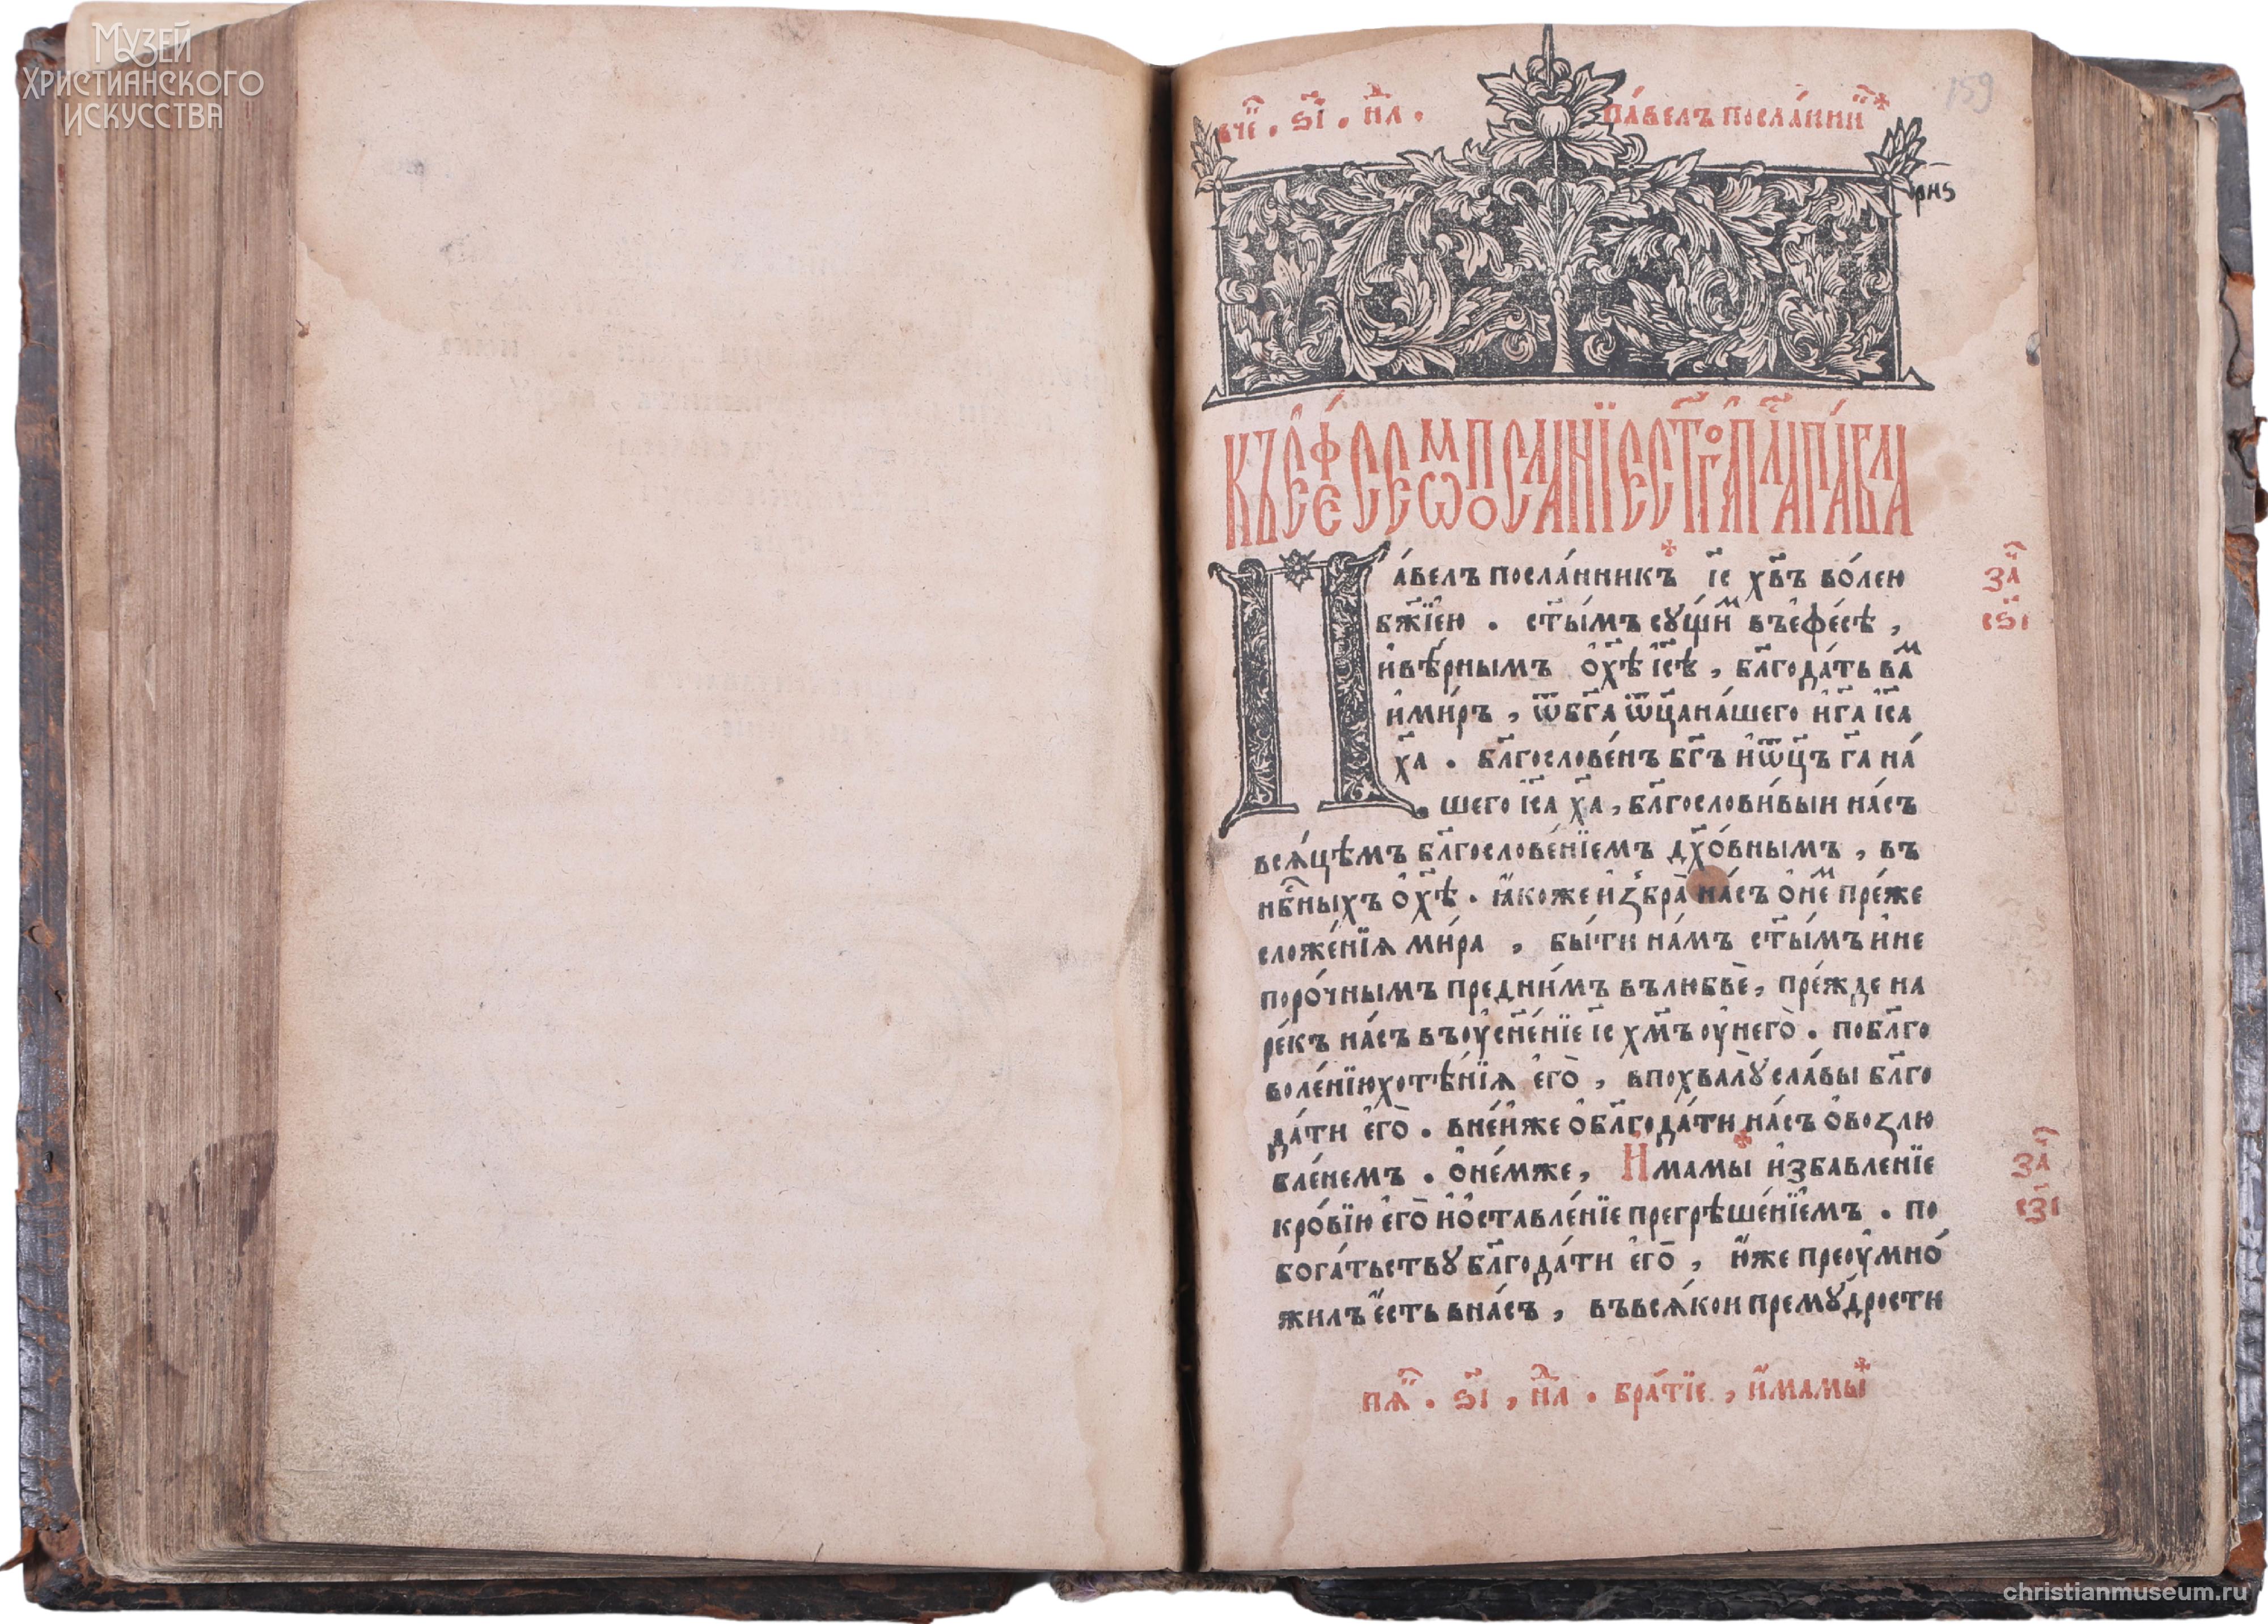 Музей
Христианского
искусства
вче҃ . ѕ҃і . нл҃ .
па́велъ посла́нни
159
рнѕ
къ є҆фесеѡм посланїе ст҃го ап҃ла павла
Па́велъ посла́нникъ і҆с х҃въ во́лею
бж҃їею . ст҃ы́мъ сꙋ́щи́м въе҆фе́сѣ ,
и҆вѣ́рнымъ ѻ҆хѣ҃ і҆сѣ҃ , бл҃года́ть ва́м
и҆ми́ръ , ѿбг҃а ѿц҃а на́шего и҆г҃а і҆с҃а
х҃а . бл҃гослове́нъ бг҃ъ и҆ѿц҃ъ г҃а на́
шего і҆с҃а х҃а , бл҃гослови́выи на́съ
вся́цѣмъ бл҃гослове́нїемъ дх҃о́внымъ , въ
нб҃ныхъ ѻ҆хѣ҃ . ꙗ҆́коже и҆ꙁбра̀ на́съ ѻ҆не́м пре́же
сложе́нїя ми́ра , бы́ти на́мъ ст҃ы́мъ и҆не
поро́чнымъ предни́мъ вълюбвѐ , пре́жде на
ре́къ на́съ въѹсн҃е́нїе і҆с х҃мъ ѹ҆негѡ̀ . побл҃го
воле́нїю хотѣ́нїя е҆гѡ̀ , впохвалꙋ̀ сла́вы бл҃го
да́ти е҆гѡ̀ . вне́йже ѻ҆бл҃года́ти на́съ ѻ҆воꙁлю
бле́немъ . ѻ҆не́мже , И҆мамы и҆збавле́нїе
кро́вїю е҆гѡ̀ и҆ѻ҆ставле́нїе прегрѣше́нїемъ . по
бога́тьствꙋ бл҃года́ти е҆гѡ̀ , ю҆́же преѹмно́
жилъ е҆́сть вна́съ , въвся́кои премꙋ́дрости
за҃
сѕ҃і
за҃
сз҃і
пя҃ . ѕ҃і , нл҃ . бра́тїе , и҆́мамы
christianmuseum.ru